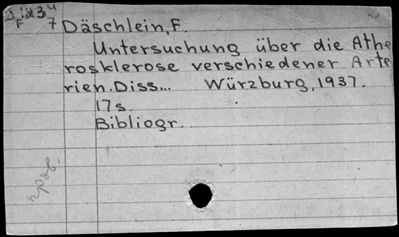 Däschlein, F.
Untersuchung über die Athe
rosklerose verschiedener Arte
rien. Diss... Würzburg, 1937.
17s.
Bibliogr.